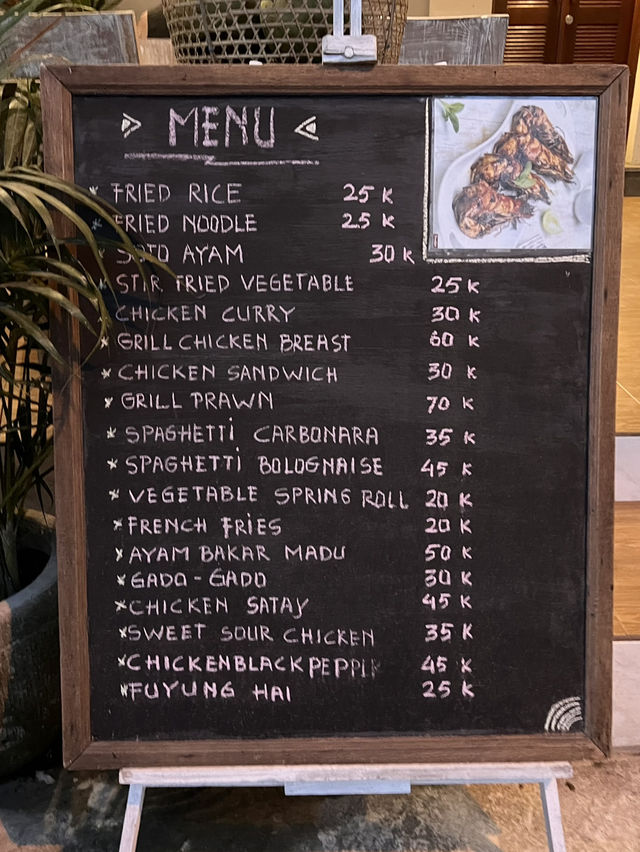 MENU
* FRIED RICE 25 K
* FRIED NOODLE 25 K
* SOTO AYAM 30 K
* STIR FRIED VEGETABLE 25 K
CHICKEN CURRY 30 K
* GRILL CHICKEN BREAST 60 K
* CHICKEN SANDWICH 30 K
* GRILL PRAWN 70 K
* SPAGHETTi CARBONARA 35 K
* SPAGHETTi BOLOGNAISE 45 K
* VEGETABLE SPRING ROLL 20 K
* FRENCH FRiES 20 K
* AYAM BAKAR MADU 50 K
* GADO - GADO 30 K
* CHICKEN SATAY 45 K
* SWEET SOUR CHICKEN 35 K
* CHICKEN BLACK PEPPER 45 K
* FUYUNG HAI 25 K